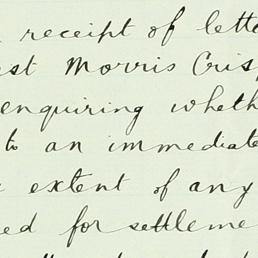 receipt of lette
est Morris Cris
enquiring wheth
to an immediate
extent of any
ed for settleme